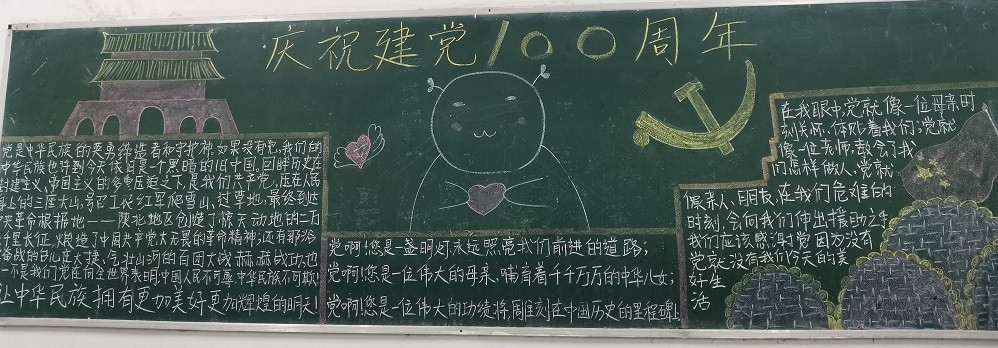 庆祝建党100周年
党是中华民族的英勇缔造者和守护神,如果没有党,我们的
中华民族也讲到今天依旧是一个黑暗的旧中国,回眸历史在
封建主义、帝国主义的多重压迫之下,是我们共产党,压在人民
身上的三座大山,号召工农红军爬雪山,过草地,最终到达
革命根据地——陕北地区创造了惊天动地的二万
千里长征,焕造了中国共产党大无畏的革命精神;还有那浴
奋战的台儿庄大捷,气壮山河的百团大战赫赫战功,也
一不是我们党在向全世界表明,中国人民不可辱,中华民族不可欺!
让中华民族拥有更加美好更加辉煌的明天!
党啊!您是一盏明灯永远照亮我们前进的道路;
党啊!您是一位伟大的母亲,哺育着千千万万的中华儿女;
党啊!您是一位伟大的功绩将,周难刻在中国历史的里程碑上
在我眼中,党就像一位母亲时
刻关怀、体贴着我们;党就
像一位老师,教会了我
们怎样做人、党就
像亲人、朋友,在我们危难的
时刻,会向我们伸出援助之手
我们应该感谢党因为没有
党就没有我们今天的美
好生
活